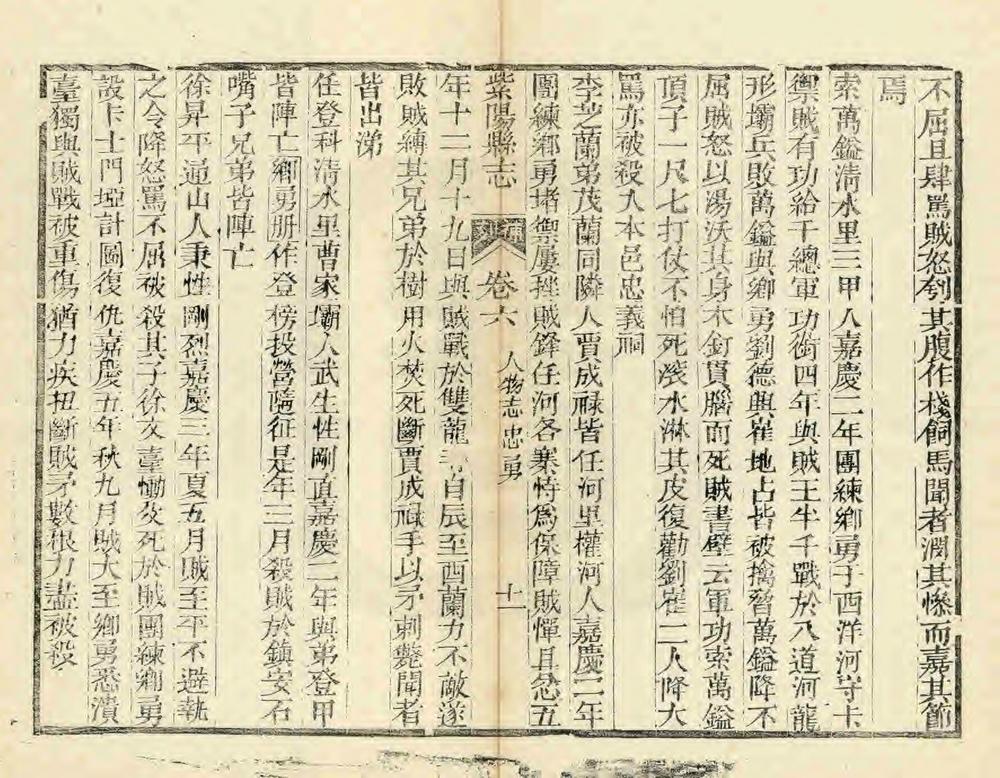 不屈且肆罵賊怒刳其腹作棧飼馬聞者潤其慘而嘉其節
焉
索萬鎰清水里三甲人嘉慶二年團練鄉勇于西洋河守卡
禦賊有功給千總軍功銜四年與賊王半千戰於八道河龍
形壩兵敗萬鎰與鄉勇劉德與崔地占皆被擒脅萬鎰降不
屈賊怒以湯沃其身木釘貫腦而死賊書壁云軍功索萬鎰
頂子一尺七打仗不怕死滾水淋其皮復勸劉崔二人降大
罵亦被殺入本邑忠義祠
李芝蘭弟茂蘭同隣人賈成祿皆任河里權河人嘉慶二年
團練鄉勇堵禦屢挫賊鋒任河各寨恃爲保障賊憚且忿五
紫陽縣志 補刻 卷六 人物志忠勇 十一
年十二月十九日與賊戰於雙龍 自辰至酉蘭力不敵遂
敗賊縛其兄弟於樹用火焚死斷賈成祿手以矛刺斃聞者
皆出涕
任登科清水里曹家壩人武生性剛直嘉慶二年與弟登甲
皆陣亡鄉勇册作登榜投營隨征是年三月殺賊於鎮安石
嘴子兄弟皆陣亡
徐昇平通山人秉性剛烈嘉慶三年夏五月賊至平不避執
之令降怒罵不屈被殺其子徐文臺慟父死於賊團練鄉勇
設卡士門埡計圖復仇嘉慶五年秋九月賊大至鄉勇悉潰
臺獨與賊戰被重傷猶力疾扭斷賊矛數根力盡被殺